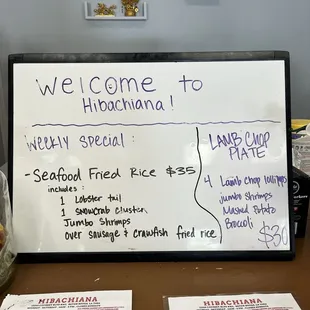 Welcome to
Hibachiana!
Weekly Special:
- Seafood Fried Rice $35
includes:
1 Lobster tail
1 Snowcrab cluster
Jumbo Shrimps
over sausage & crawfish fried rice
LAMB CHOP
PLATE
4 Lamb chop lollipops
jumbo shrimps
Mashed Potato
Broccoli
$30
HIBACHIANA
HIBACHIANA